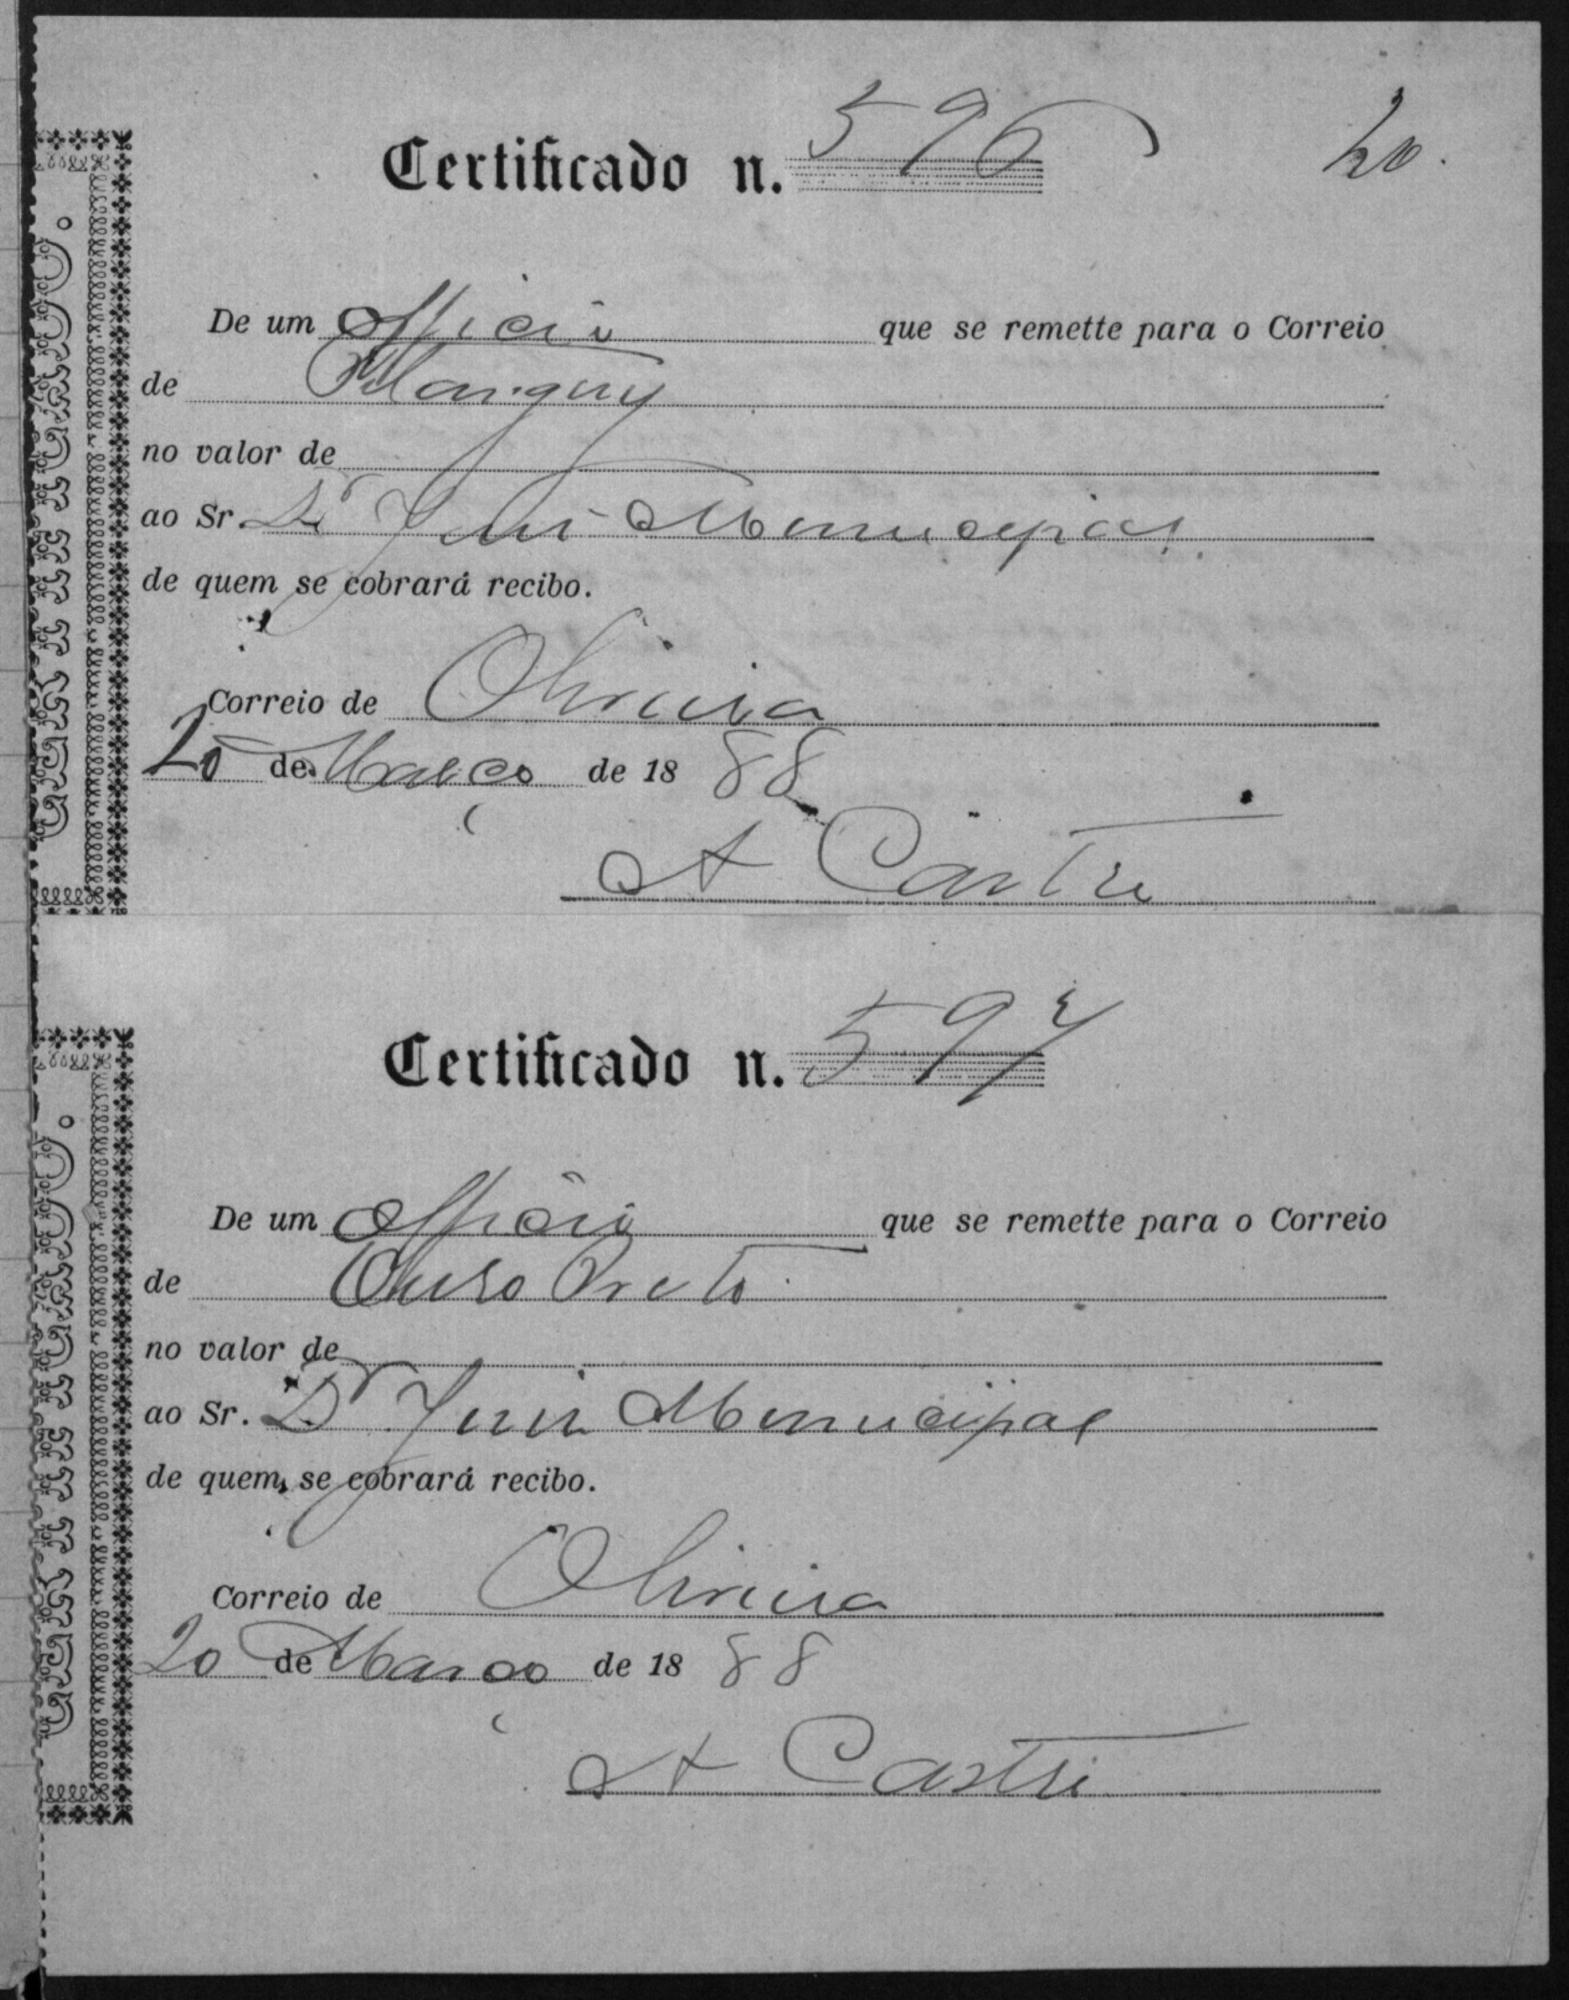 Certificado n. 596 20.
De um Officio que se remette para o Correio
de
no valor de
ao Sr. Dr Juiz Municipal
de quem se cobrará recibo.
Correio de Oliveira
20 de Março de 1888
A Castro
Certificado n. 597
De um Officio que se remette para o Correio
de Ouro Preto
no valor de
ao Sr. Dr Juiz Municipal
de quem se cobrará recibo.
Correio de Oliveira
20 de Março de 1888
A Castro